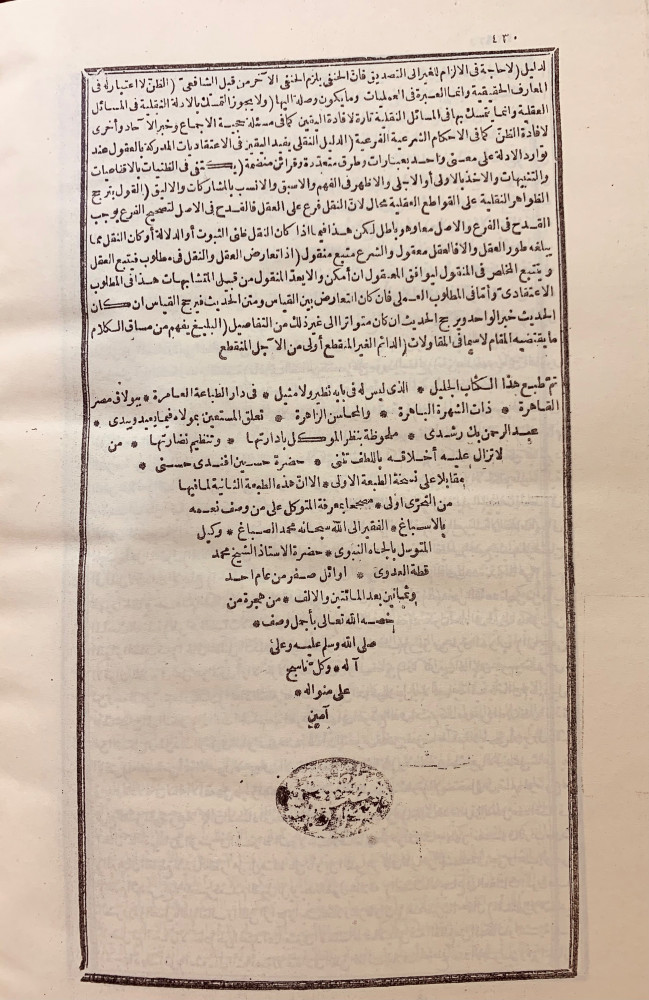 ٤٣٠
لدليل (لا حاجة فى الالزام للغير الى التصديق فان الحنفى يلزم الحنفى الآخر من قبل الشافعى (الظن لا اعتبار له فى
المعارف الحقيقية وانما العبرة فى العمليات وما يكون وصلة اليها (ولا يجوز التمسك بالادلة النقلية فى المسائل
العقلية وانما يتمسك بها فى المسائل النقلية تارة لافادة اليقين كما فى مسئلة حجية الاجماع وخبر الآحاد وأخرى
لافادة الظن كما فى الاحكام الشرعية الفرعية (الدليل النقلى يفيد اليقين فى الاعتقاديات المدركة بالعقول عند
توارد الادلة على معنى واحد بعبارات وطرق متعددة وقرائن منضمة (يكتفى فى الظنيات بالاقناعيات
والتنبيهات والاخذ بالاولى أو الاجلى والاظهر فى الفهم والاسبق والانسب بالمشاركات والاليق (القول بترجيح
الظواهر النقلية على القواطع العقلية محال لان النقل فرع على العقل فالقدح فى الاصل لتصحيح الفرع يوجب
القدح فى الفرع والاصل معا وهو باطل لكن هذا فيما اذا كان النقل ظنى الثبوت أو الدلالة أو كان النقل مما
يبلغه طور العقل والا فالعقل معقول والشرع متبع منقول (اذا تعارض العقل والنقل فى مطلوب فيتبع العقل
ويتتبع المخلص فى المنقول ليوافق المعقول ان أمكن والا يعد المنقول من قبيل المتشابهات هذا فى المطلوب
الاعتقادى وأما فى المطلوب العملى فان كان التعارض بين القياس ومتن الحديث فيرجح القياس ان كان
الحديث خبر الواحد ويرجح الحديث ان كان متواترا الى غير ذلك من التفاصيل (البليغ يفهم من مساق الكلام
ما يقتضيه المقام لا سيما فى المقاولات (الدائم الغير المنقطع أولى من الآجل المنقطع
تم طبع هذا الكتاب الجليل * الذى ليس له فى بابه نظير ولا مثيل * فى دار الطباعة العامرة * ببولاق مصر
القاهرة * ذات الشهرة الباهرة * والمحاسن الزاهرة * تعلق المستعين بمولاه فيما يعيد ويبدى *
عبد الرحمن بك رشدى * ملحوظة بنظر الموكل بادارتها * وتنظيم نضارتها * من
لا تزال عليه أخلاقه باللطف تثنى * حضرة حسين افندى حسنى *
مقابلا على نسخة الطبعة الاولى * الا ان هذه الطبعة الثانية لما فيها
من التحرى أولى * مصححا بمعرفة المتوكل على من وصف نعمه
بالاسباغ * الفقير الى الله سبحانه محمد الصباغ * وكيل
المتوسل بالجاه النبوى * حضرة الاستاذ الشيخ محمد
قطة العدوى * اوائل صفر من عام احد
وثمانين بعد المائتين والالف * من هجرة من
خصه الله تعالى بأجمل وصف *
صلى الله وسلم عليه وعلى
آله * وكل ناسج
على منواله *
آمين